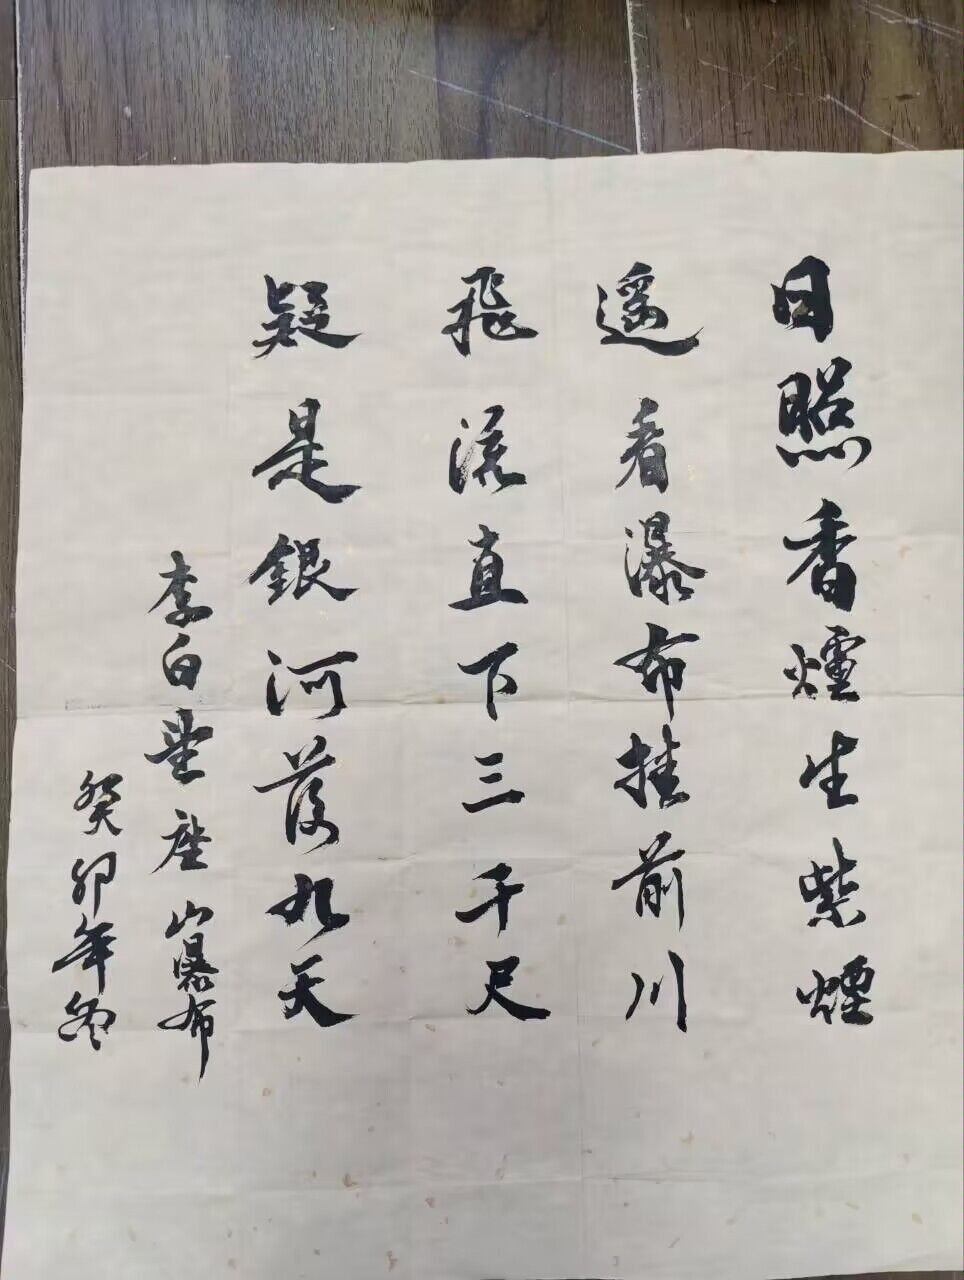 日照香爐生紫煙
遥看瀑布挂前川
飛流直下三千尺
疑是銀河落九天
李白望座山暴布
癸卯年冬